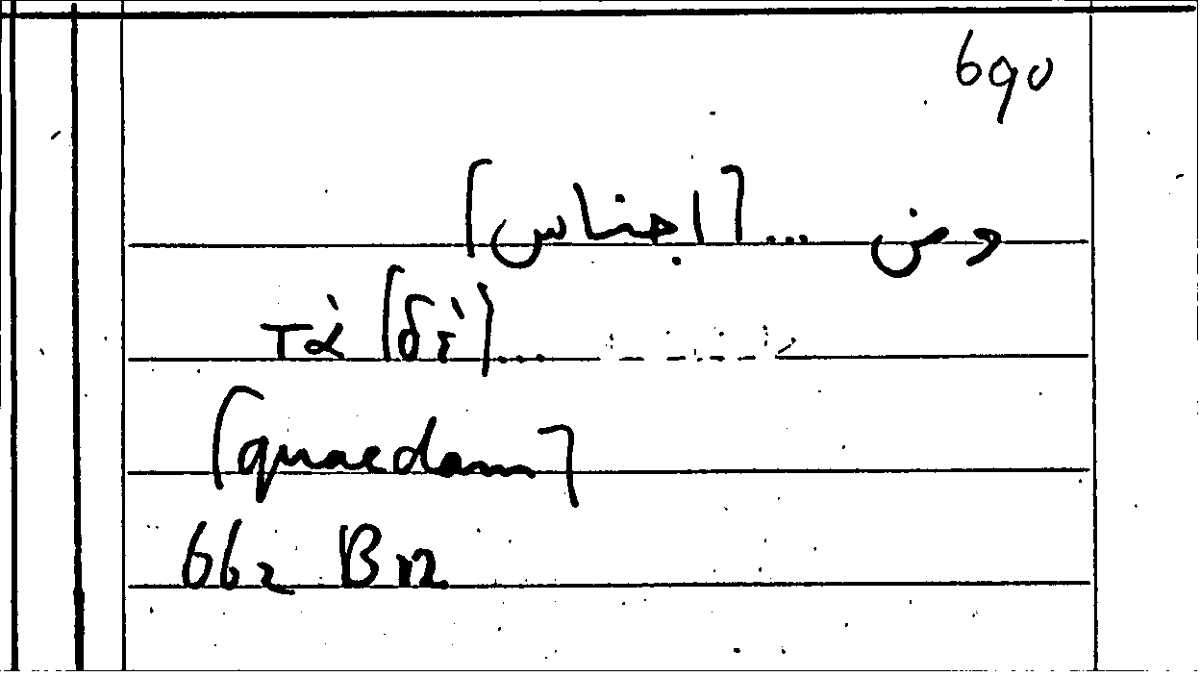 690
ومن ... [اجناس]
τὰ [δὲ] ...
[quaedam]
662 B 12